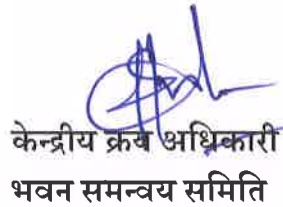 केन्द्रीय क्रय अधिकारी
भवन समन्वय समिति